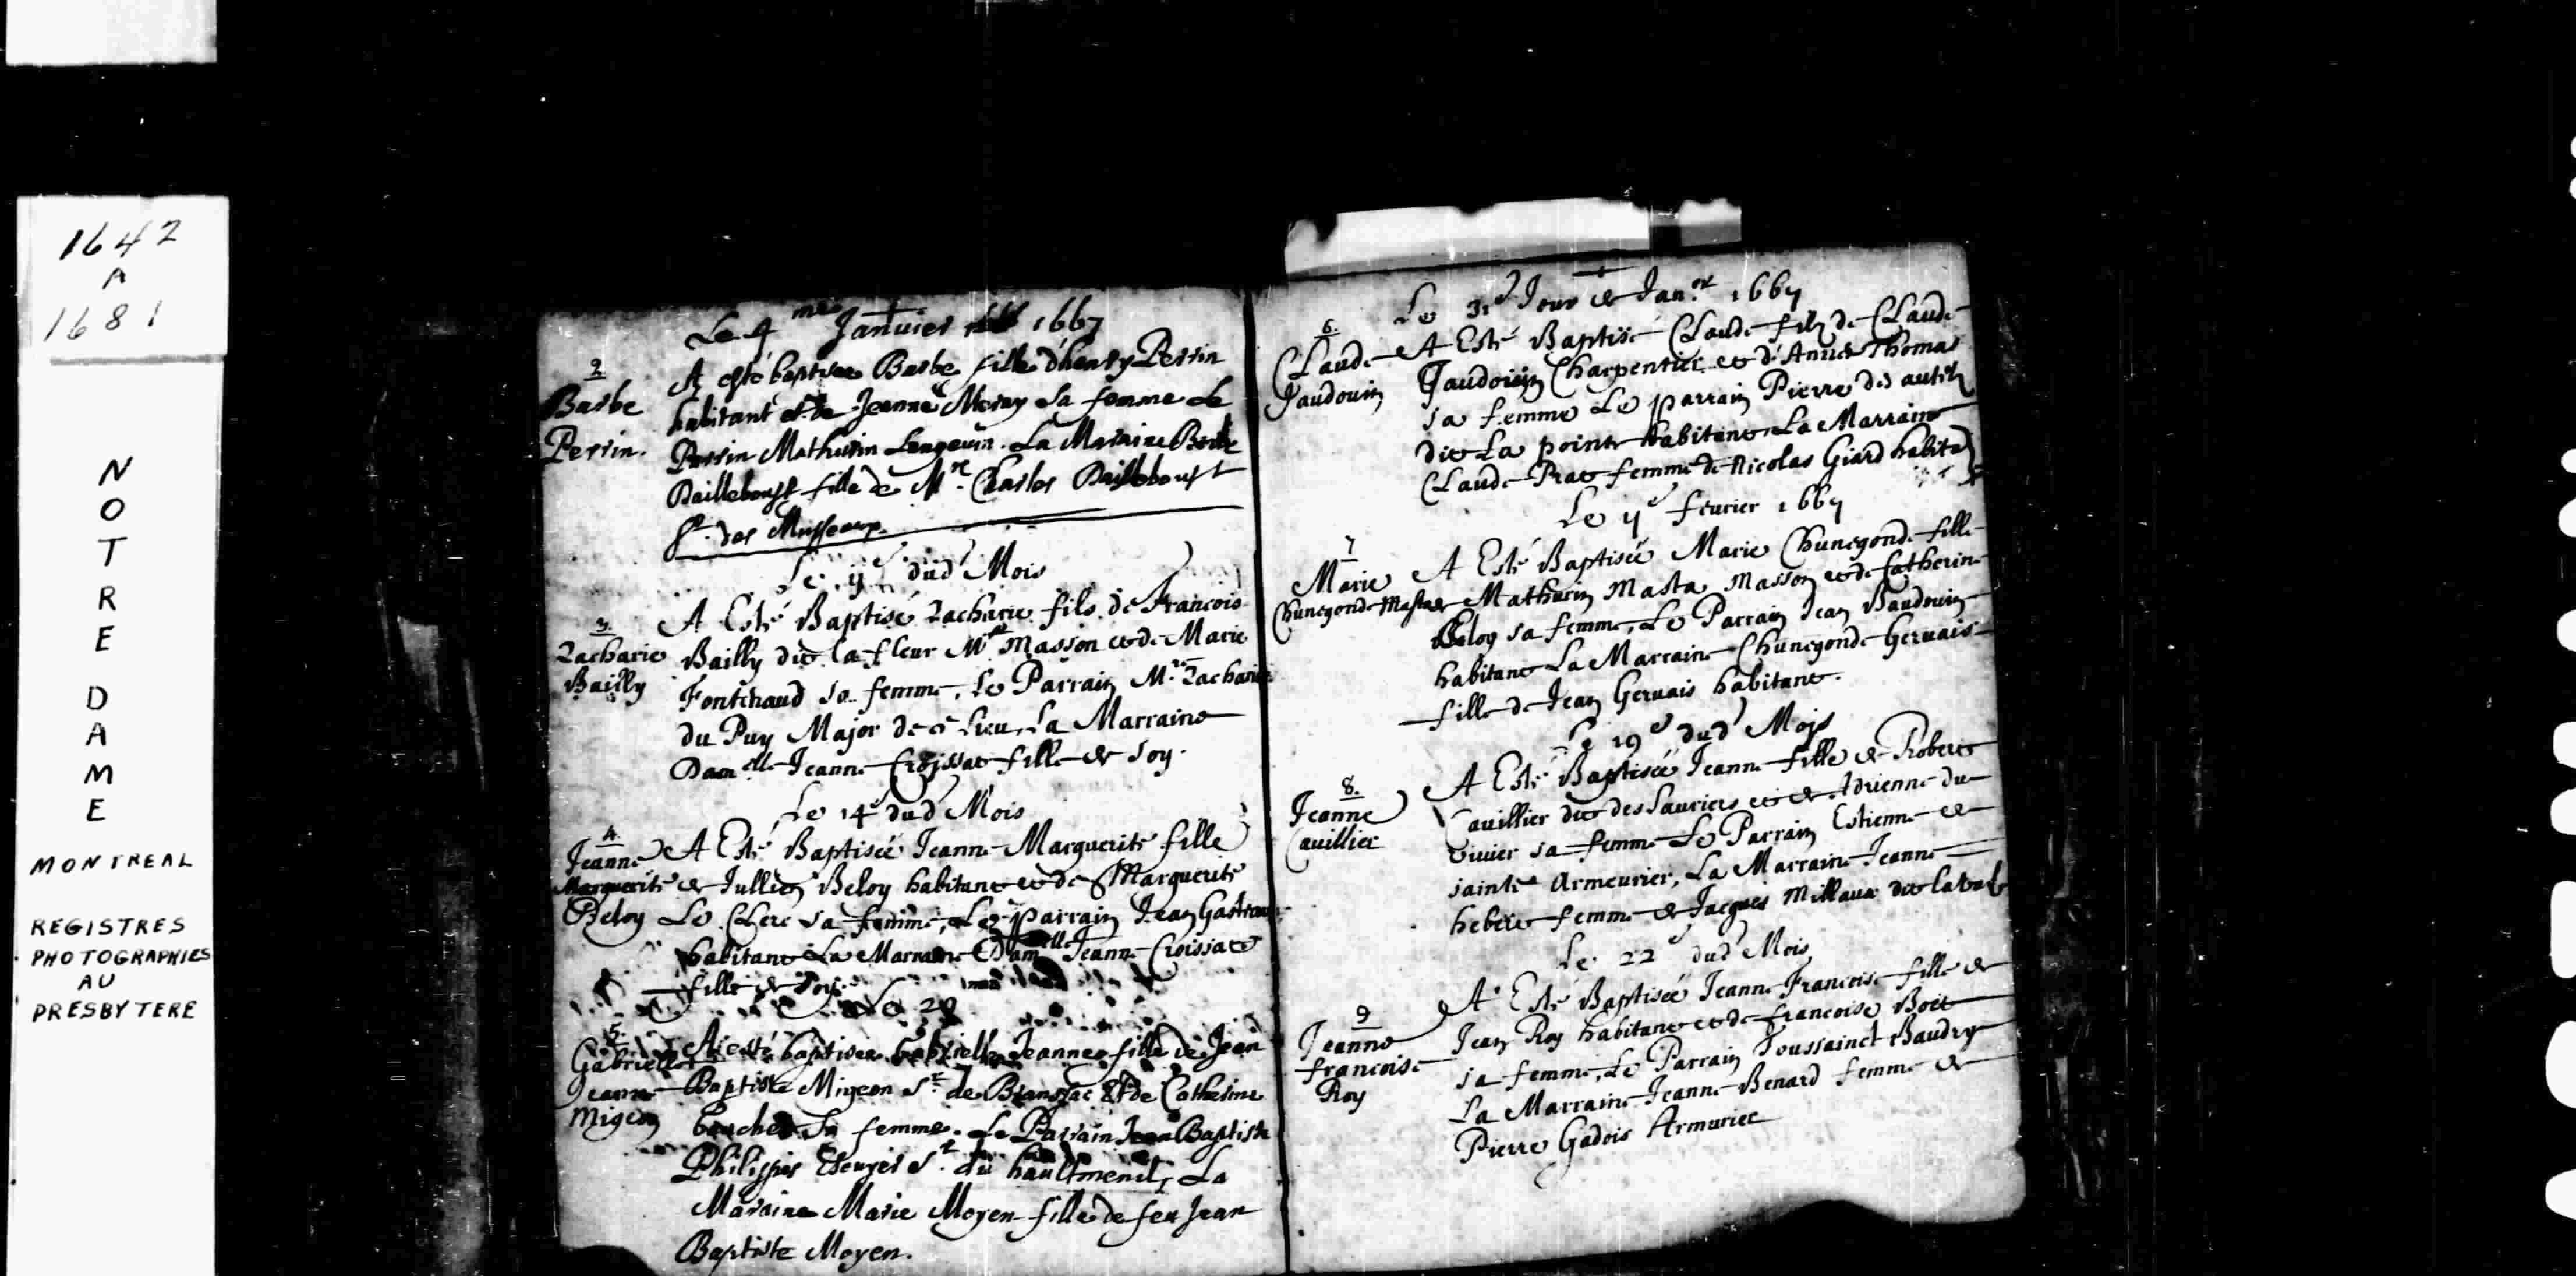 1642
A
1681
NOTRE DAME
MONTREAL
REGISTRES
PHOTOGRAPHIES
AU
PRESBYTERE
Le 4 me Januier 1667
2.
Barbe
Perrin.
A esté baptisee Barbe fille d'henry Perrin
habitant et de Jeanne Merry sa femme Le
Parrin Mathurin Langeuin. La Maraine Barbe
Dailleboust fille de Mr. Charles Dailleboust
Sr. des Musseaux.
Le 11e dud Mois
3.
Zacharie
Bailly
A Esté Baptisé Zacharie fils de Francois
Bailly dit la fleur Mtre Masson et de Marie
Fontenaud sa femme, Le Parrain Mr. Zacharie
du Puy Major de ce Lieu, La Marraine
Damelle Jeanne Croissat fille de Soy.
Le 14e dud Mois
4.
Jeanne
Marguerite
Beloy
A Esté Baptiseé Jeanne Marguerite fille
de Jullien Beloy habitant et de Marguerite
Le Clerc sa femme, Le parrain Jean Gasteau
habitant La Marraine Damelle Jeanne Croissat
fille de Soy.
Le 28
5.
Gabrielle
Jeanne
Migeon
A esté baptisee Gabrielle Jeanne fille de Jean
Baptiste Migeon Sr. de Bransac Et de Catherine
bouchet Sa femme. Le Parrain Jean Baptiste
Philippes Escuyer Sr. du haultmenil, La
Maraine Marie Moyen fille de feu Jean
Baptiste Moyen.
Le 31e Jour de Janer 1667
6.
Claude
Jaudouin
A Esté Baptisé Claude fils de Claude
Jaudouin Charpentier et d'Anne Thomas
sa femme Le parrain Pierre des autels
dit La pointe habitant La Marraine
Claude Prat femme de Nicolas Giard habita
Le 11e feurier 1667
7
Marie
Chunegonde Masta
A Esté Baptiseé Marie Chunegonde fille
de Mathurin Masta Masson et de Catherine
Eloy sa femme, Le Parrain Jean Baudouin
habitant La Marraine Chunegonde Geruais
fille de Jean Geruais habitant.
Le 19e dud Mojs
8.
Jeanne
Cauillier
A Esté Baptiseé Jeanne fille de Robert
Cauillier dit des Lauriers et de Adrienne du
viuier sa femme Le Parrain Estienne de
sainte Armeurier, La Marraine Jeanne
hebert femme de Jacques Millaux dit
Le 22e dud Mois
9
Jeanne
francoise
Roy
A Esté Baptiseé Jeanne Francoise fille de
Jean Roy habitant et de francoise Boit
sa femme, Le Parrain Toussainct Baudry
La Marraine Jeanne Benard femme de
Pierre Gadois Armurier